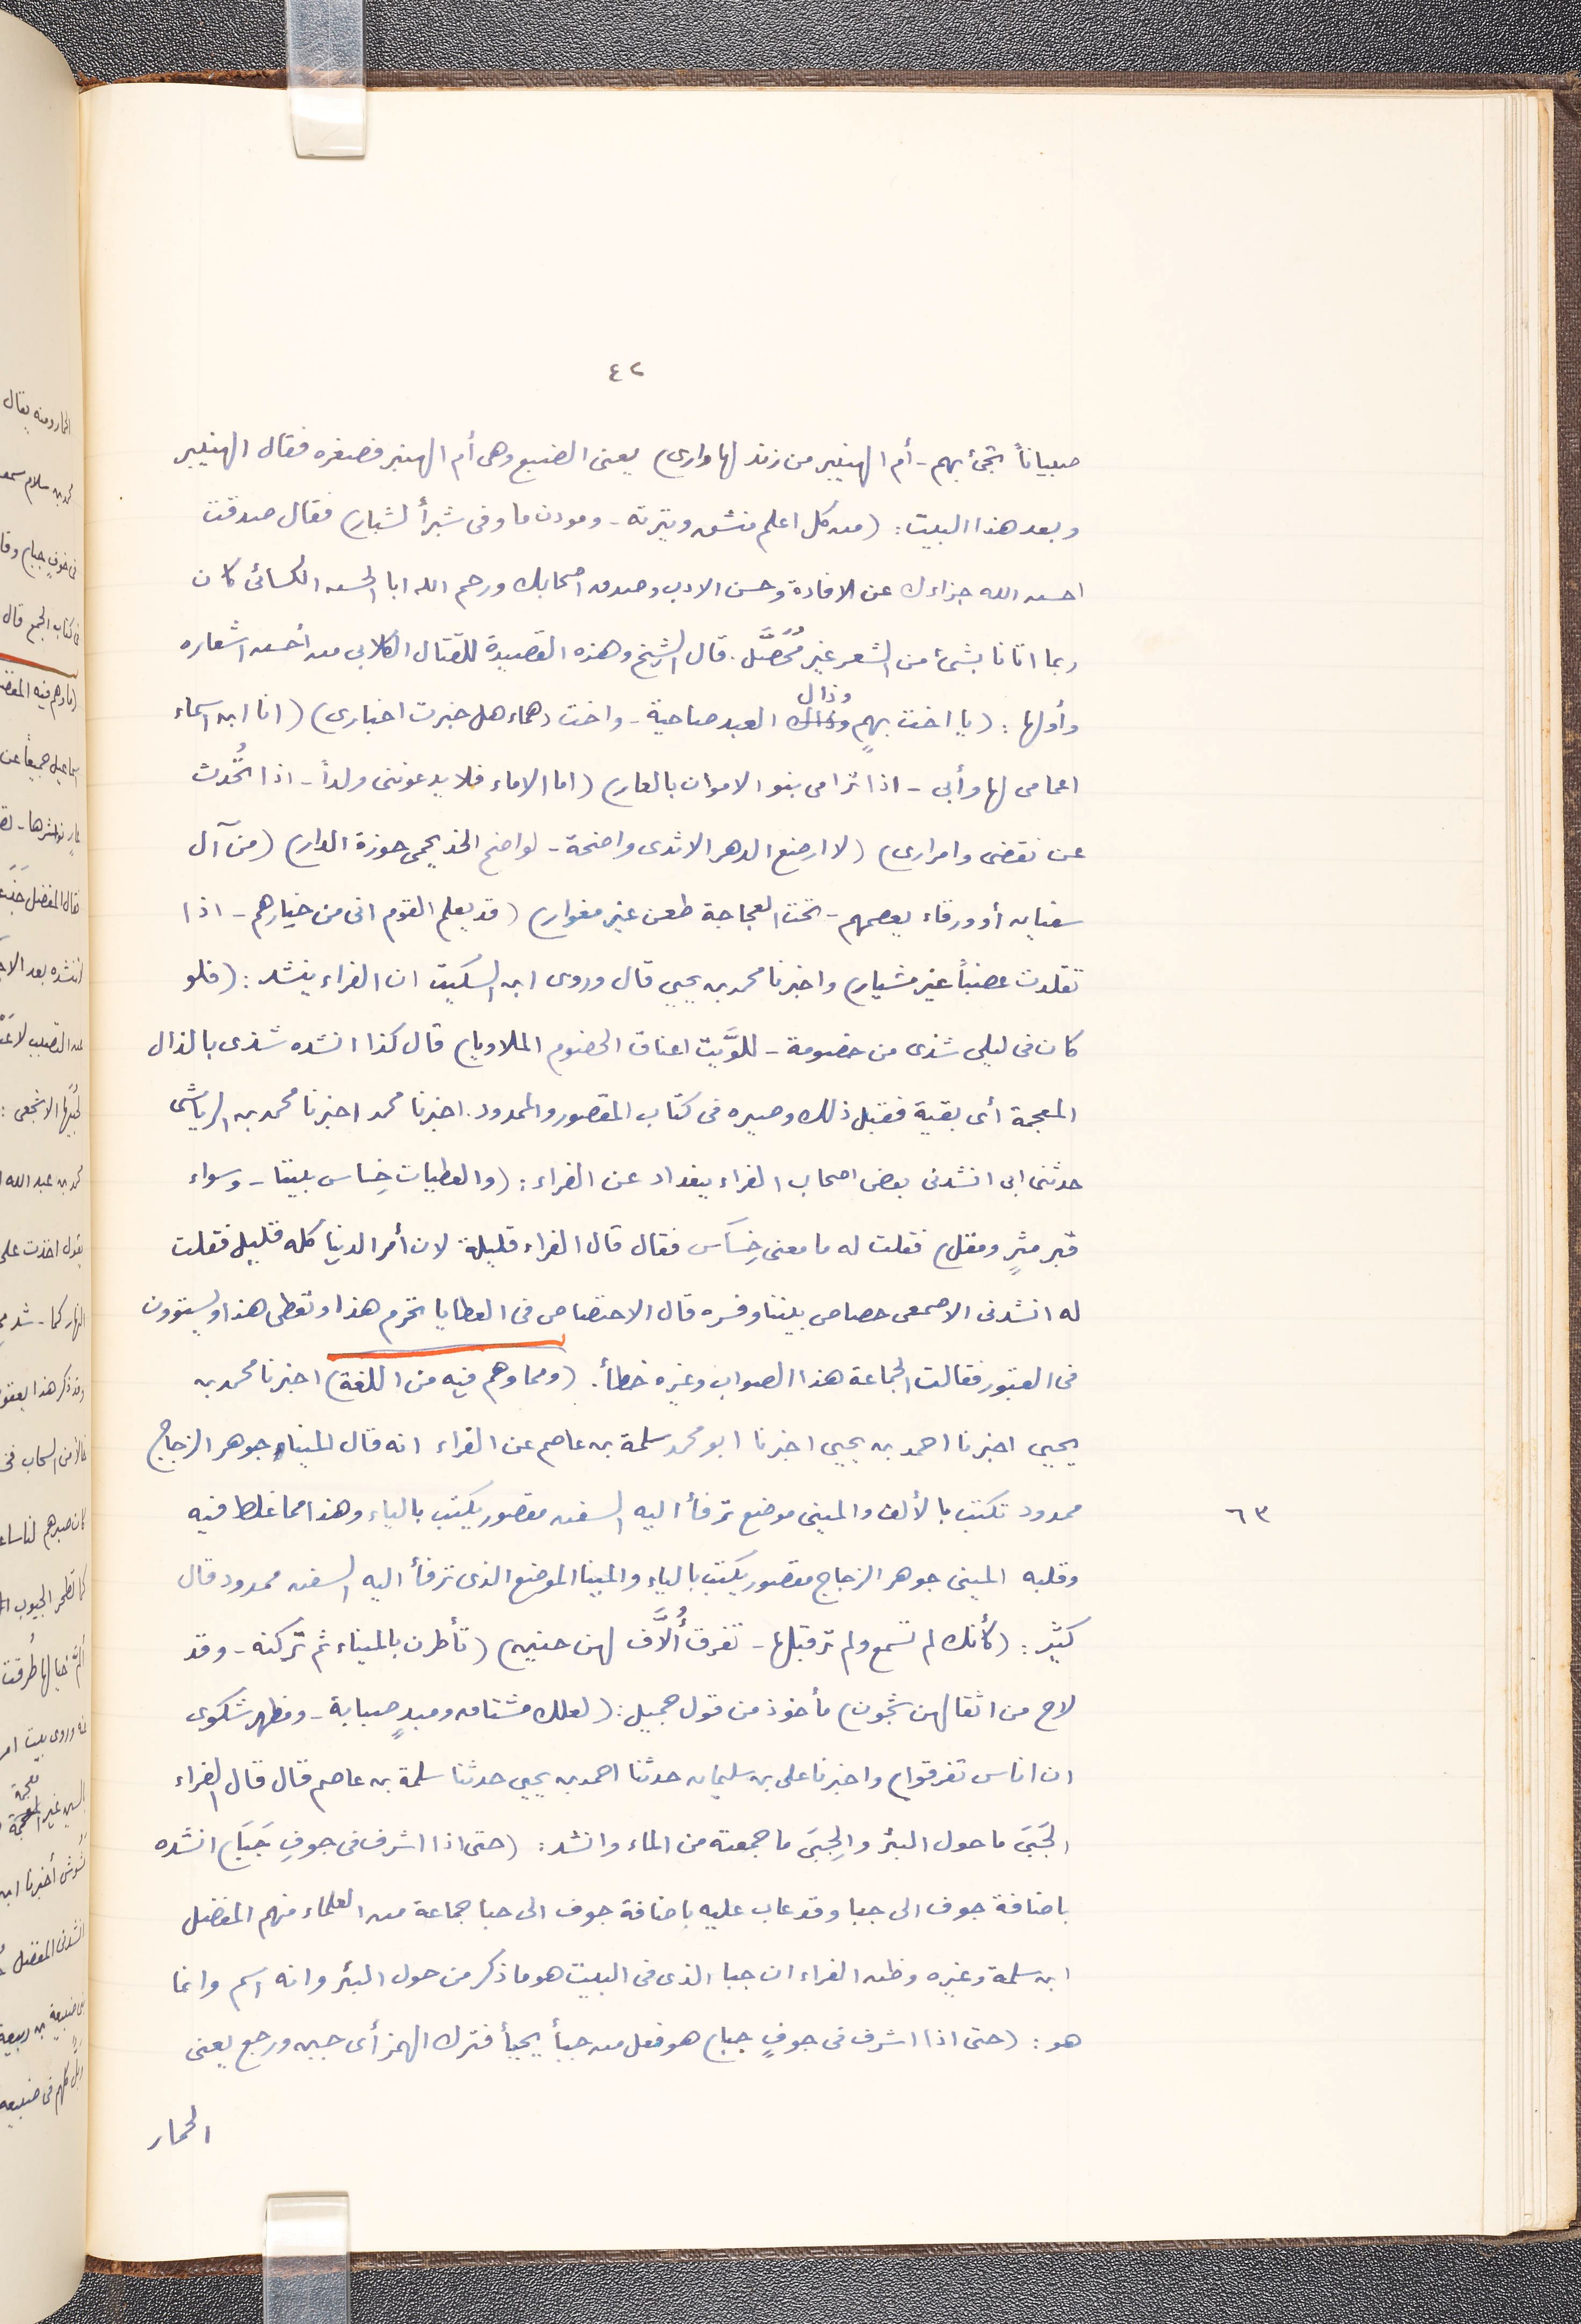 ٤٢
صبياناً تجئ بهم - أم الهنيبر من زند لها وارى) يعنى الضبع وهى أم الهنبر فصغره فقال الهنيبر
وبعد هذا البيت: (من كل اعلم منشق وتيرته - ومودن ما وفى شبرأ لشبار) فقال صدقت
احسن الله جزاءك عن الافادة وحسن الادب وصدق اصحابك ورحم الله ابا الحسن الكسائى كان
ربما اتانا بشئ من الشعر غير مُحَصَّل. قال الشيخ وهذه القصيدة للقتال الكلابى من أحسن اشعاره
وأولها: (يا اخت بهمٍ وذال العبد صاحية - واخت دهماء هل خبرت اخبارى) (انا ابن اسماء
اعمامى لها وأبى - اذا ترامى بنو الاموان بالعار) (اما الاماء فلا يدعوننى ولداً - اذا تُحُدث
عن نقضى وامرارى) (لا ارضع الدهر الا ثدى واضحة - لواضح الخد يحمى حوزة الدار) (من آل
سفيان أو ورقاء يعصمهم - تحت العجاجة طعن غير مغوار) (قد يعلم القوم انى من خيارهم - اذا
تقلدت عضباً غير مشيار) واخبرنا محمد بن يحيى قال وروى ابن السكيت ان الفراء ينشد: (فلو
كان فى ليلى شذى من خصومة - للوَّيت اعناق الخصوم الملاويا) قال كذا انشده شذى بالذال
المعجمة أى بقية فقبل ذلك وصيره فى كتاب المقصور والممدود. اخبرنا محمد اخبرنا محمد بن الرياشى
حدثنى ابى انشدنى بعض اصحاب الفراء ببغداد عن الفراء: (والعطيات خِساس بيننا - وسواء
قبر مثرٍ ومقل) فقلت له ما معنى خِسَاس فقال قال الفراء قليلة لان أمر الدنيا كله قليل فقلت
له انشدنى الاصمعى حصاص بيننا وفسره قال الاختصاص فى العطايا تحرم هذا وتعطى هذا ويستوون
فى القبور فقالت الجماعة هذا الصواب وغيره خطأ. (ومما وهم فيه من اللغة) اخبرنا محمد بن
يحيى اخبرنا احمد بن يحيى اخبرنا ابو محمد سلمة بن عاصم عن الفراء انه قال الميناء جوهر الزجاج
ممدود تكتب بالألف والمينى موضع ترفأ اليه السفن مقصور يكتب بالياء وهذا مما غلط فيه
٦٣
وقلبه المينى جوهر الزجاج مقصور يكتب بالياء والمينا الموضع الذى ترفأ اليه السفن ممدود قال
كثير: (كأنك لم تسمع ولم تر قبلها - تفرق أُلَّاف لهن حنين) (تأطرن بالميناء ثم تركنه - وقد
لاح من اثقالهن شجون) مأخوذ من قول جميل: (لعلك مشتاق ومبدٍ صبابة - ومظهر شكوى
ان اناس تفرقوا) واخبرنا على بن سليمان حدثنا احمد بن يحيى حدثنا سلمة بن عاصم قال قال الفراء
الجَبَى ما حول البئر والجِبَى ما جمعته من الماء وانشد: (حتى اذا اشرف فى جوفِ جَبَا) انشده
باضافة جوف الى جبا وقد عاب عليه باضافة جوف الى جبا جماعة من العلماء منهم المفضل
ابن سلمة وغيره وظن الفراء ان جبا الذى فى البيت هو ما ذكر من حول البئر وانه اسم وانما
هو: (حتى اذا اشرف فى جوفٍ جبا) هو فعل من جبأ يجبأ فترك الهمز أى جبن ورجع يعنى
الحمار